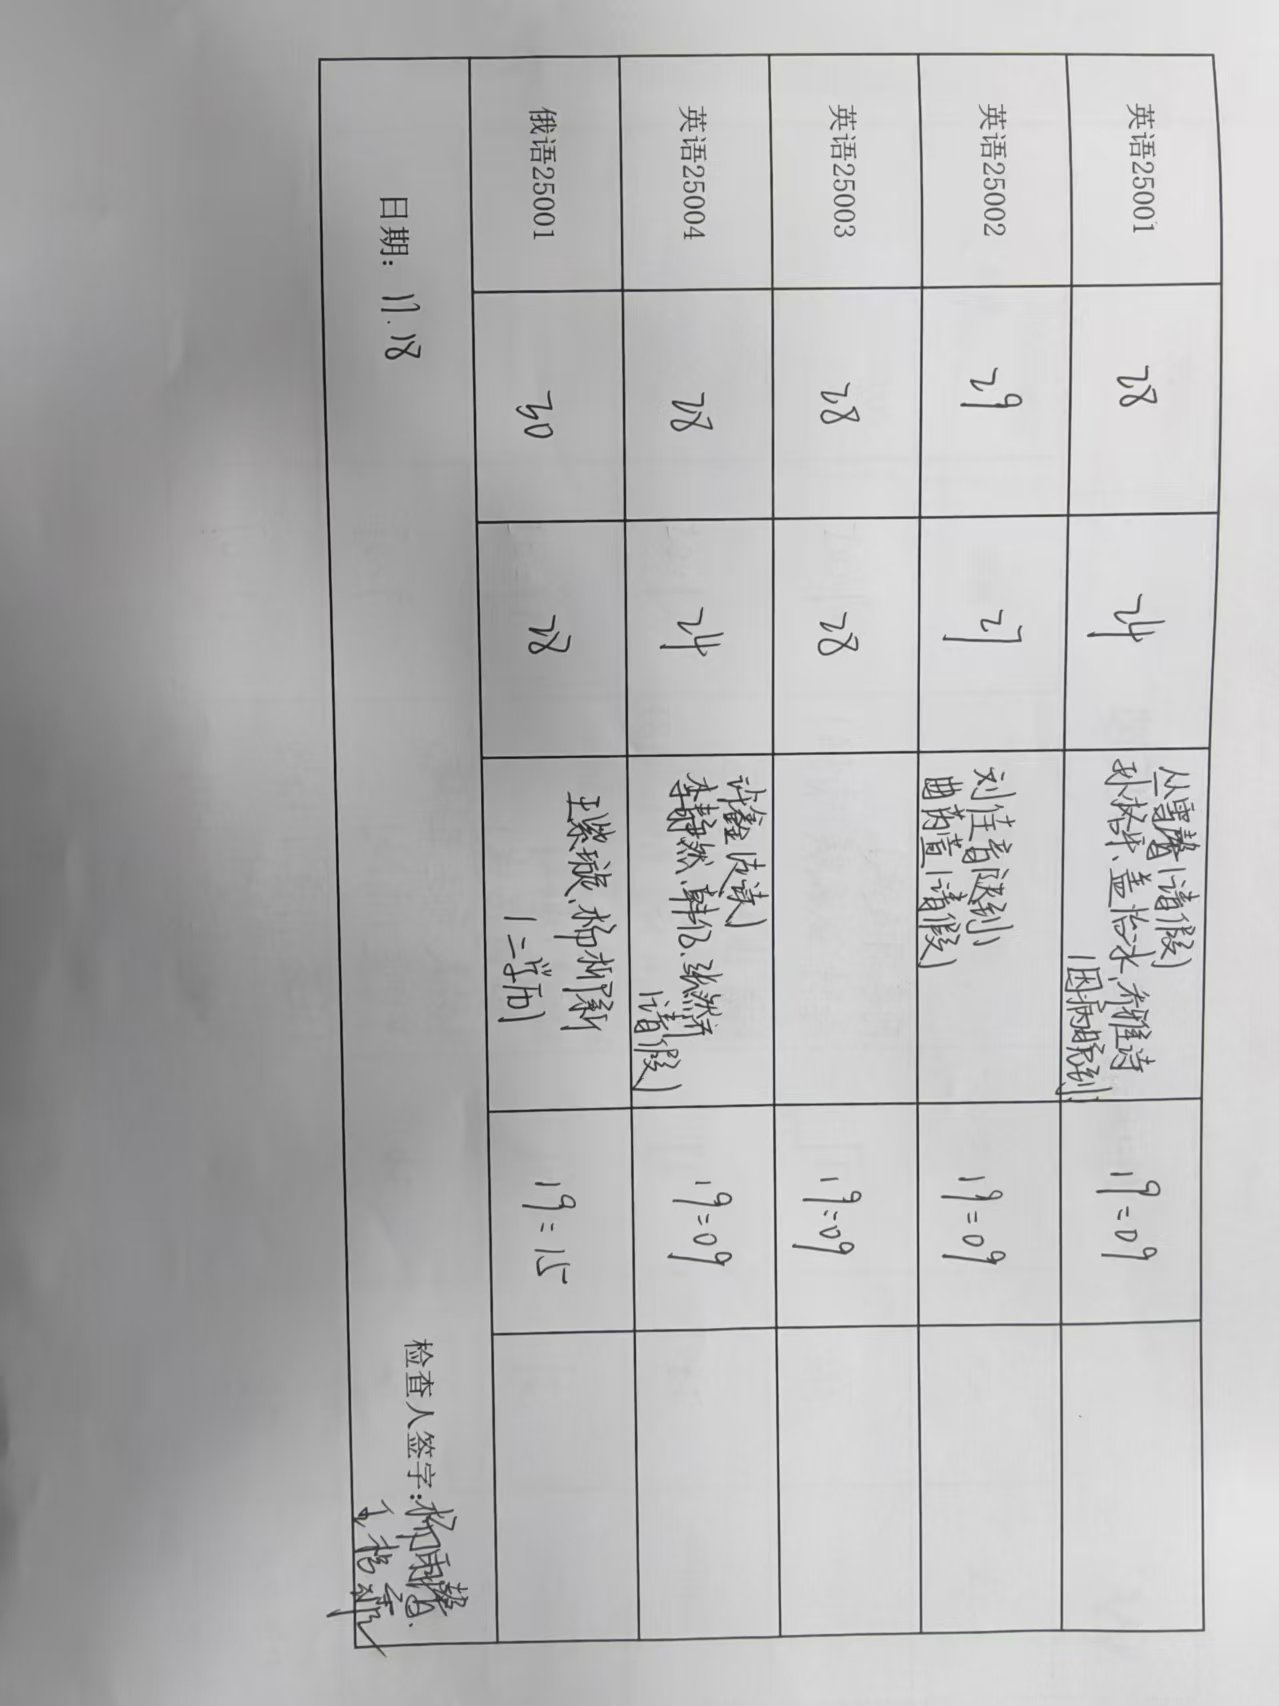 英语25001 28 24 丛雪馨(请假) 19:09
孙格平、盖怡冰、乔雅诗
(因病晚到)
英语25002 29 27 刘佳音(晚到) 19:09
曲芮萱(请假)
英语25003 28 28 19:09
英语25004 28 24 许鑫 19:09
李静然、韩亿、
(请假)
俄语25001 30 28 王紫璇、杨柳新 19:15
(二学历)
日期: 11.18 检查人签字: 杨雨馨